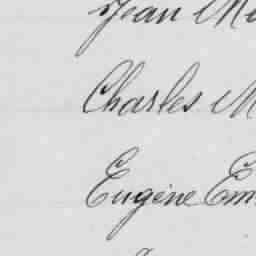 Jean
Charles M
Eugène Em